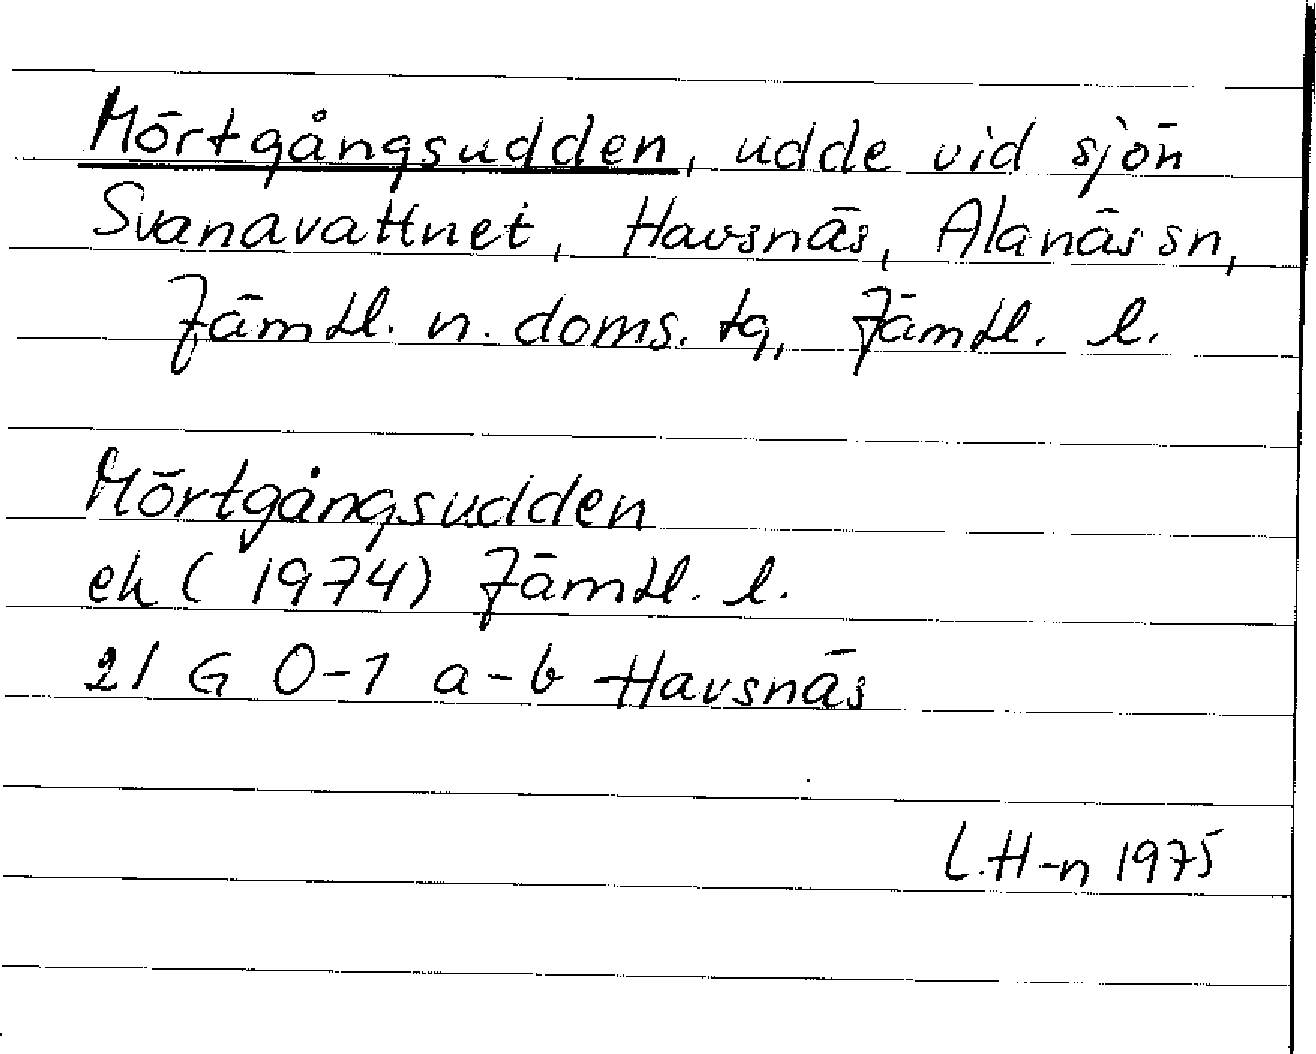 Mörtgångsudden, udde vid sjön
Svanavattnet, Havsnäs, Alanäs sn,
Jämtl. n. doms. tg, Jämtl. l.
Mörtgångsudden
ek (1974) Jämtl. l.
21 G 0-1 a-b Havsnäs
L.H-n 1975